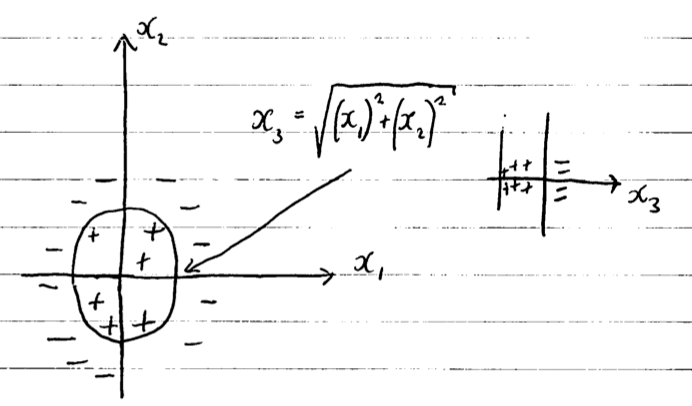 x₂
x₃ = √((x₁)² + (x₂)²)
+ + + =
+ + + =
x₃
− −
− −
+ +
− + −
x₁
− + −
+ +
− −
−
−